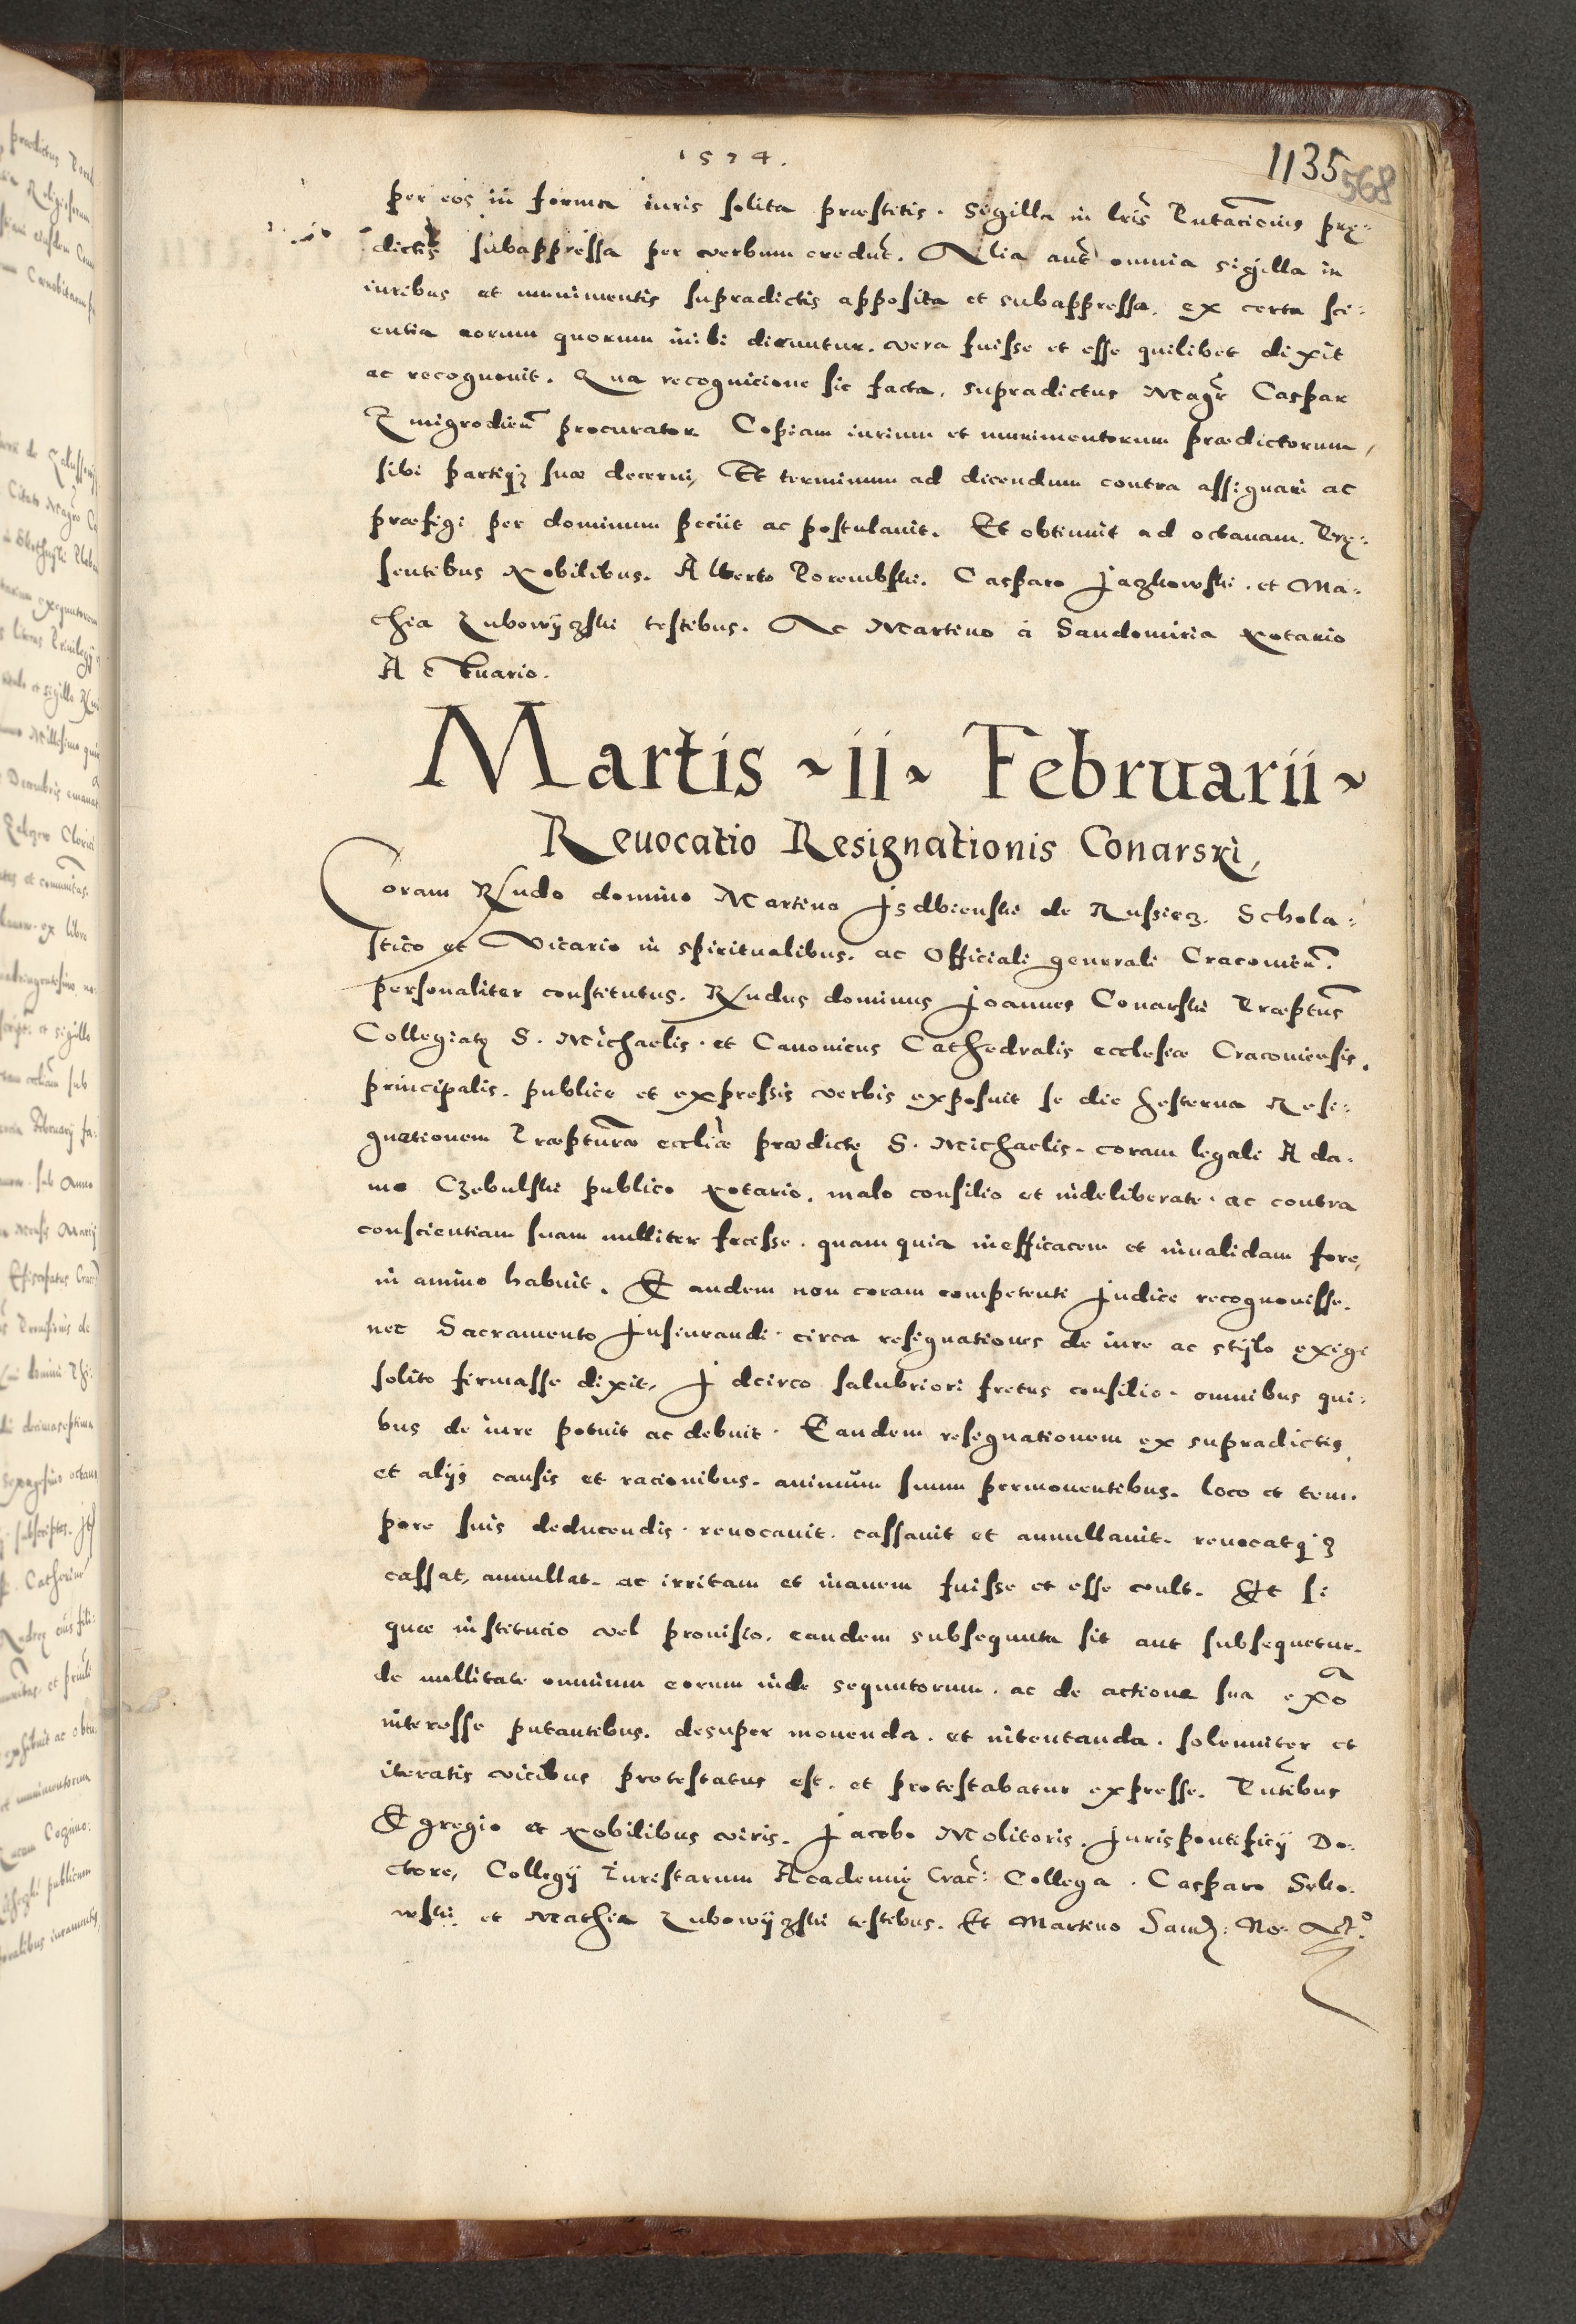 1574.
1135
568
per eos in forma iuris solita præstitis. Sigilla in lr̃is Putac̃ionis prę:
dictis subappressa per verbum credunt. Alia aut̃ omnia sigilla in
iuribus et munimentis supradictis apposita et subappressa, ex certa sci:
entia eorum quorum inibi dicuntur. vera fuisse et esse quilibet dixit
ac recognouit. Qua recognicione sic facta, supradictus Magr̃ Caspar
Zmigrodien̄ procurator Copiam iurium et munimentorum prædictorum,
sibi partiq3 suæ decerni, Et terminum ad dicendum contra assignari ac
præfigi per dominum peciit ac postulauit. Et obtinuit ad octauam. Prę:
sentibus Nobilibus. Alberto Porembski. Casparo Jaczkowski. et Ma:
thia Zubowÿczski testibus. Ac Martino à Sandomiria Notario
Actuario.
Martis ~ii~ Februarii~
Reuocatio Resignationis Conarski,
Coram R̃ndo domino Martino Jsdbienski de Russiecz. Schola:
stico et Vicario in spiritualibus. ac Officiali generali Cracouien̄.
personaliter constitutus. R̃ndus dominus Joannes Conarski Præptus̃
Collegiatę S. Michaelis. et Canonicus Cathedralis ecclesiæ Cracouiensis,
principalis. publice et expressis verbis exposuit se die hesterna Resi:
gnationem Præptur̃æ eccl̃iæ prædictę S. Michaelis. coram legali Ada.
mo Czebulski publico Notario, malo consilio et indeliberate. ac contra
conscientiam suam nulliter fecisse. quam quia inefficacem et inualidam fore,
in animo habuit. Et eandem non coram competenti Judice recognouisse.
nec Sacramento Jusiurandi. circa resignationes de iure ac stÿlo exigi
solito firmasse dixit, Jdcirco salubriori fretus consilio. omnibus qui:
bus de iure potuit ac debuit. Eandem resignationem ex supradictis,
et alijs causis et racionibus. animum̃ suum permouentibus. loco et tem.
pore suis deducendis. reuocauit. cassauit et annullauit. reuocatq3
cassat, annullat. ac irritam et inanem fuisse et esse vult. Et si
quæ institucio vel prouisio, eandem subsequuta sit aut subsequetur.
de nullitate omnium eorum inde sequutorum. ac de actione sua ex̃o
interesse putantibus. desuper mouenda. et intentanda. solenniter et
iteratis vicibus protestatus est. et protestabatur expresse. Pñtibus
Egregio et Nobilibus viris. Jacobo Molitoris. Juris pontificij Do.
ctore, Collegij Iurestarum Academię Crac̃: Collega. Casparo
et Mathia Zubowÿczski testibus. Et Martino Sand: No. Act°.